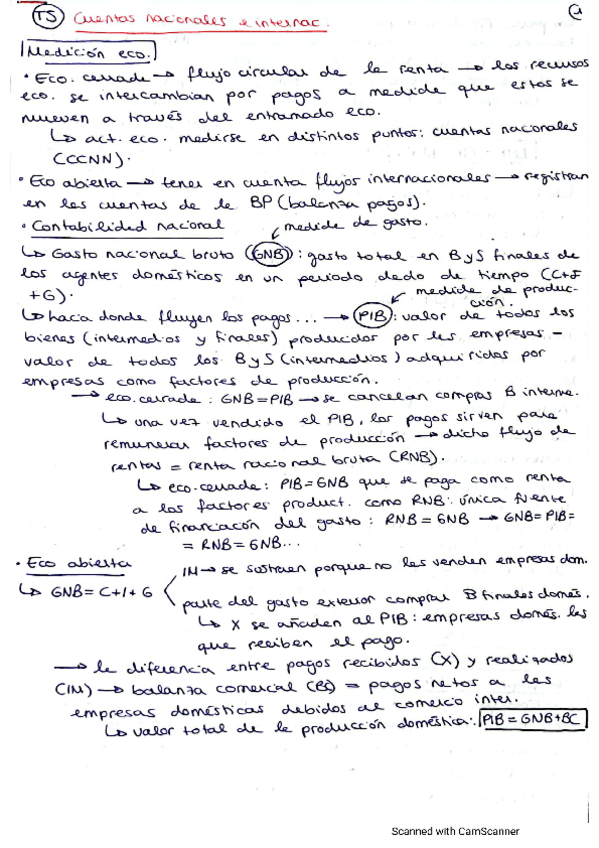 T5 Cuentas nacionales e internac. 1
Medición eco.
• Eco. cerrada → flujo circular de la renta → los recursos
eco. se intercambian por pagos a medida que estos se
mueven a través del entramado eco.
↳ act. eco. medirse en distintos puntos: cuentas nacionales
(CCNN).
• Eco abierta → tener en cuenta flujos internacionales → registran
en las cuentas de la BP (balanza pagos).
• Contabilidad nacional medida de gasto.
↳ Gasto nacional bruto (GNB): gasto total en B y S finales de
los agentes domésticos en un periodo dado de tiempo (C+I
+G). medida de produc-
ción.
↳ hacia donde fluyen los pagos... → (PIB): valor de todos los
bienes (intermedios y finales) producidos por las empresas –
valor de todos los B y S (intermedios) adquiridos por
empresas como factores de producción.
→ eco. cerrada: GNB = PIB → se cancelan compras B interme.
↳ una vez vendido el PIB, los pagos sirven para
remunerar factores de producción → dicho flujo de
rentas = renta nacional bruta (RNB).
↳ eco. cerrada: PIB = GNB que se paga como renta
a los factores product. como RNB: única fuente
de financiación del gasto: RNB = GNB → GNB = PIB =
= RNB = GNB...
• Eco abierta IM → se sustraen porque no las venden empresas dom.
↳ GNB = C + I + G
parte del gasto exterior compran B finales domés.
↳ X se añaden al PIB: empresas domés. las
que reciben el pago.
→ la diferencia entre pagos recibidos (X) y realizados
(IM) → balanza comercial (BC) = pagos netos a las
empresas domésticas debidos al comercio inter.
↳ valor total de la producción doméstica: PIB = GNB + BC
Scanned with CamScanner